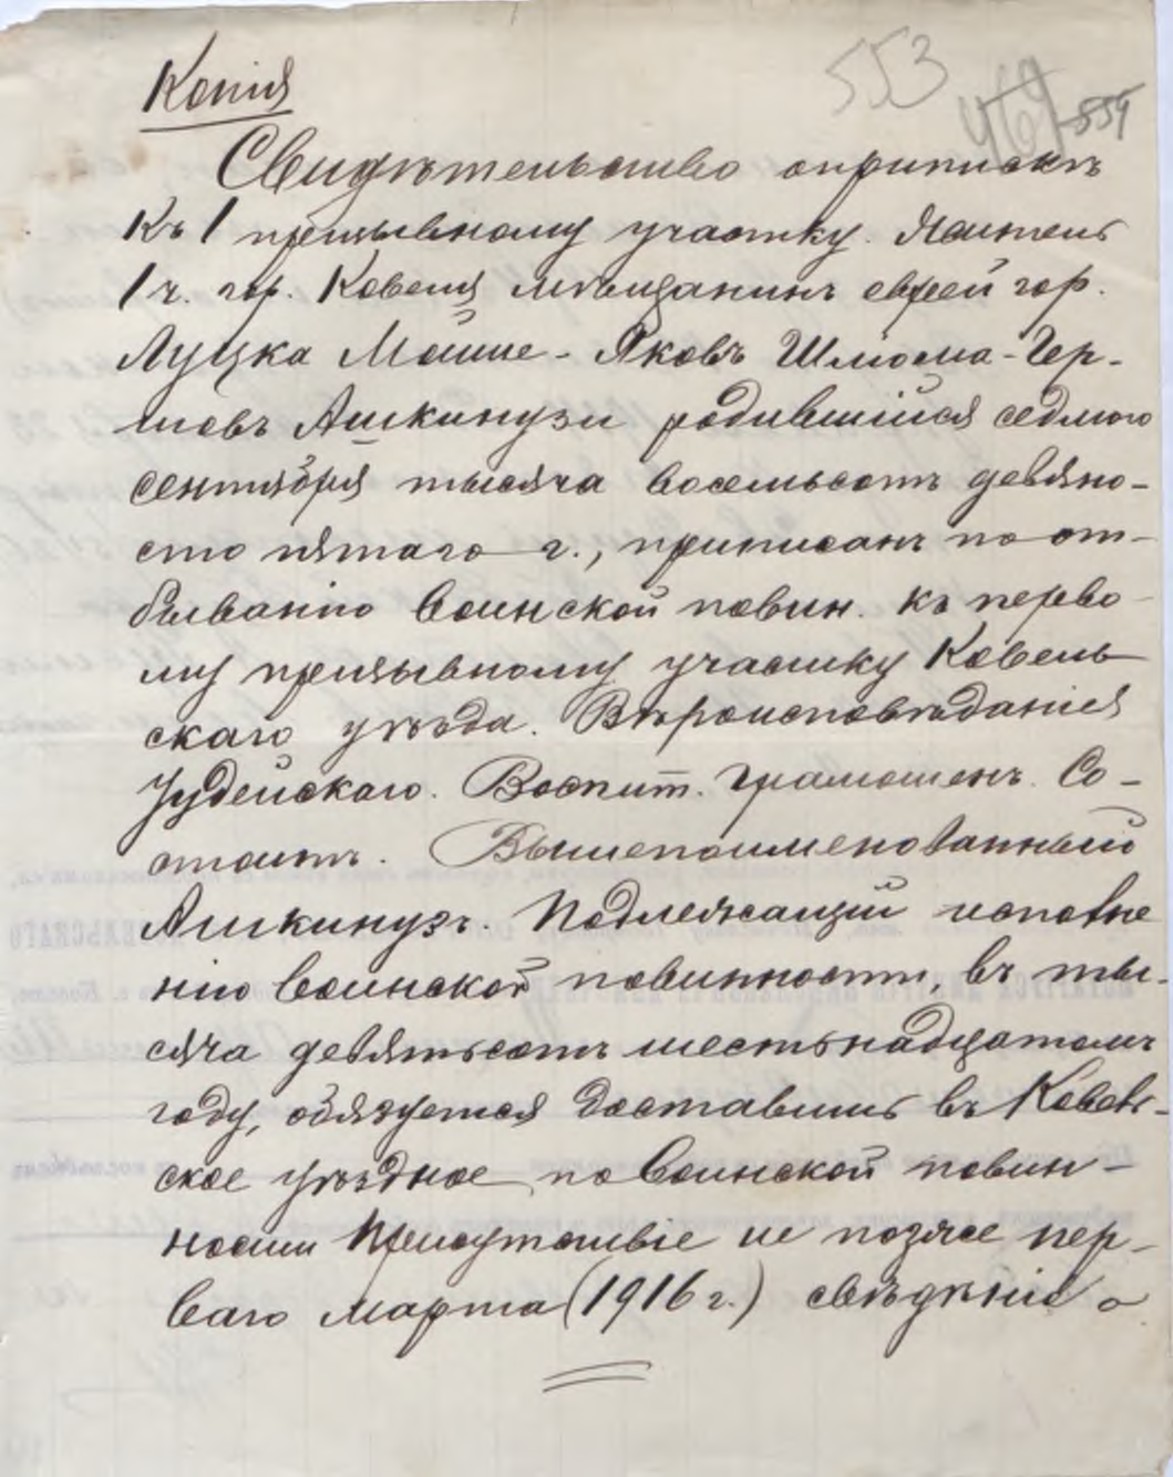 553
469 554
Копія
Свидѣтельство оприпискѣ
къ 1 призывному участку. Житель
1 ч. гор. Ковеля мѣщанинъ еврей гор.
Луцка Мошие - Яковъ Шліома - Гер-
шовъ Ашкинузи родившійся седмого
сентября тысяча восемьсотъ девяно-
сто пятаго г., приписанъ по от-
быванію воинской повин. къ перво-
му призывному участку Ковель-
скаго уѣзда. Вѣроисповѣданія
Іудейскаго. Воспит. грамотенъ. Со-
стоитъ. Вышепоименованный
Ашкинузъ. Подлежащій исполне
нію воинской повинности, въ ты-
сяча девятьсотъ шестьнадцатомъ
году, обязуется доставить въ Ковель-
ское уѣздное по воинской повин-
ности Присутствіе не позже пер-
ваго марта (1916 г.) свѣдѣніе о